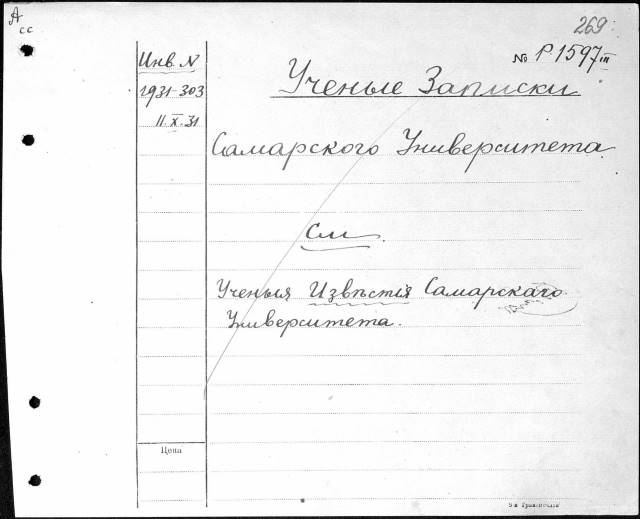 А
сс
269
№ Р.1597 III
Инв. N
1931-303
11.X.31
Ученые Записки
Самарского Университета.
См.
Ученыя Извѣстія Самарскаго
Университета.
Цена